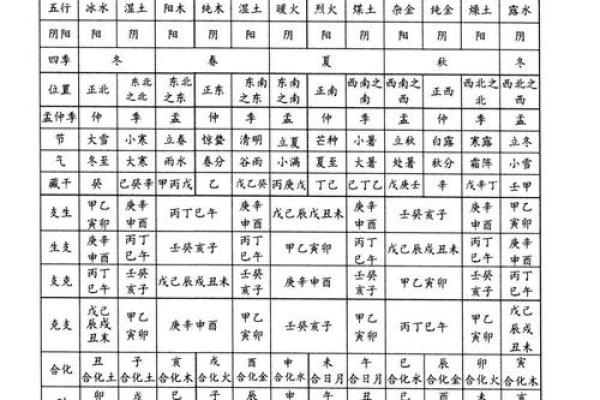 五行 冰水 湿土 阳木 纯木 湿土 暖火 烈火 煤土 杂金 纯金 燥土 露水
阴阳 阳 阴 阳 阴 阳 阴 阳 阴 阳 阴 阳 阴
四季 冬 春 夏 秋 冬
位置 正北 东北之北 东北之东 正东 东南之东 东南之南 正南 西南之南 西南之西 正西 西北之北 西北之西
孟仲季 仲 季 孟 仲 季 孟 仲 季 孟 仲 季 孟
节 大雪 小寒 立春 惊蛰 清明 立夏 芒种 小暑 立秋 白露 寒露 立冬
气 冬至 大寒 雨水 春分 谷雨 小满 夏至 大暑 处暑 秋分 霜阵 小雪
藏干 癸 己癸辛 甲丙戊 乙 戊乙癸 丙庚戊 丁己 己丁乙 戊庚壬 辛 戊辛丁 壬甲
支生 甲乙寅卯 庚辛申酉 丙丁巳午 庚辛申酉 戊己辰戌丑未 庚辛申酉 壬癸亥子 庚辛申酉 甲乙寅卯
生支 庚辛申酉 丙丁巳午 壬癸亥子 丙丁巳午 甲乙寅卯 丙丁巳午 戊己辰戌丑未 丙丁巳午 庚辛申酉
支克 丙丁巳午 壬癸亥子 戊己辰戌丑未 壬癸亥子 庚辛申酉 壬癸亥子 甲乙寅卯 壬癸亥子 丙丁巳午
克支 戊己辰戌丑未 甲乙寅卯 庚辛申酉 甲乙寅卯 壬癸亥子 甲乙寅卯 丙丁巳午 甲乙寅卯 戊己辰戌丑未
合化 丑合化土 子合化土 亥合化木 戌合化火 酉合化金 申合化水 未合日月 午合日月 巳合化水 辰合化金 卯合化火 寅合化木